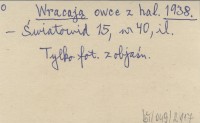 Wracają owce z hal. 1938.
– Światowid 15, nr 40, il.
Tylko fot. z objaśn.